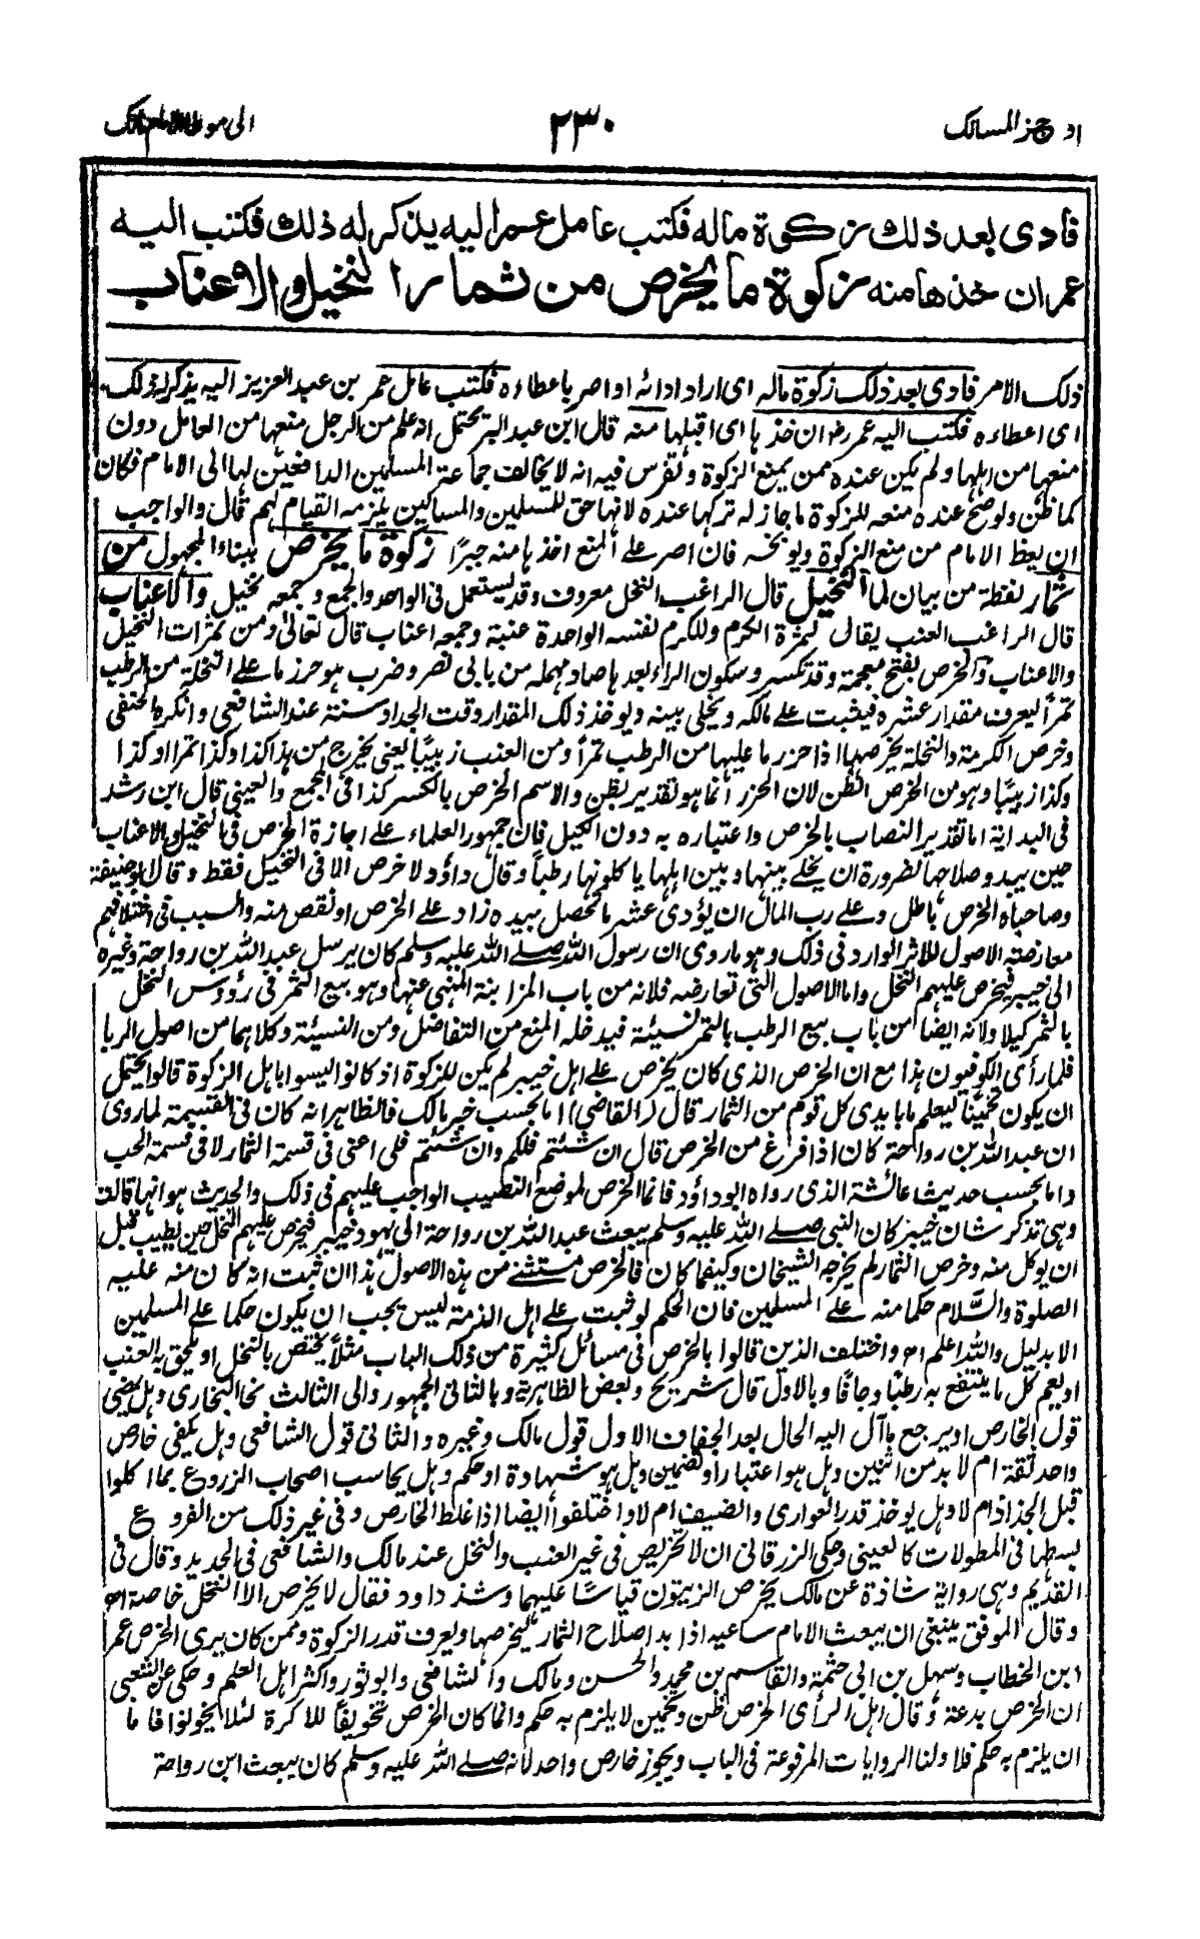 اوجز المسالك
٢٣٠
الى موطا الامام مالك
فادى بعد ذلك زكوة ماله فكتب عامل عمر اليه يذكر له ذلك فكتب اليه
عمر ان خذها منه زكوة ما يخرص من ثمار النخيل والاعناب
ذلك الامر فادى بعد ذلك زكوة ماله اى اراد ادائه او اصر باعطاءه فكتب عامل عمر بن عبد العزيز اليه يذكر له ذلك
اى اعطاءه فكتب اليه عمر رض ان خذها اى اقبلها منه قال ابن عبد البر يحتمل انه علم من الرجل منعها من العامل دون
منعها من اهلها ولم يكن عنده ممن يمنع الزكوة وتفرس فيه انه لا يخالف جماعة المسلمين الدافعين لها الى الامام فكان
كما ظن ولو صح عنده منعه للزكوة ما جاز له تركها عنده لانها حق للمسلمين والمساكين يلزمه القيام لهم قال والواجب
ان يعظ الامام من منع الزكوة ويوبخه فان اصر على المنع اخذها منه جبرًا زكوة ما يخرص ببناء المجهول من
ثمار لفظة من بيان لما النخيل قال الراغب النخل معروف وقد يستعمل فى الواحد والجمع وجمعه نخيل والاعناب
قال الراغب العنب يقال لثمرة الكرم وللكرم لنفسه الواحدة عنبة وجمعه اعناب قال تعالى ومن ثمرات النخيل
والاعناب والخرص بفتح معجمة وقد تكسر وسكون الراء بعدها صاد مهمله من بابى نصر وضرب هو حرز ما على النخلة من الرطب
تمرا ليعرف مقدار عشره فيثبت على مالكه ويخلى بينه ويوخذ ذلك المقدار وقت الجداد سنة عند الشافعى وانكره الحنفى
وخرص الكرمة والنخلة يخرصها اذا حزر ما عليها من الرطب تمرا ومن العنب زبيبًا يعنى يخرج من هذا كذا وكذا تمرا او كذا
وكذا زبيبًا وهو من الخرص الظن لان الحزر انما هو تقدير بظن والاسم الخرص بالكسر كذا فى المجمع والعينى قال ابن رشد
فى البداية اما تقدير النصاب بالخرص واعتباره به دون الكيل فان جمهور العلماء على اجازة الخرص فى النخيل والاعناب
حين يبدو صلاحها لضرورة ان يخلى بينها وبين اهلها ياكلونها رطبًا وقال داؤد لا خرص الا فى النخيل فقط وقال ابو حنيفة
وصاحباه الخرص باطل وعلى رب المال ان يؤدى عشر ما تحصل بيده زاد على الخرص او نقص منه والسبب فى اختلافهم
معارضة الاصول للاثر الوارد فى ذلك وهو ما روى ان رسول الله صلى الله عليه وسلم كان يرسل عبد الله بن رواحة وغيره
الى خيبر فيخرص عليهم النخل واما الاصول التى تعارضه فلانه من باب المزابنة المنهى عنها وهو بيع الثمر فى رؤوس النخل
بالثمر كيلا ولانه ايضا من باب بيع الرطب بالتمر نسيئة فيدخله المنع من التفاضل ومن النسيئة وكلاهما من اصول الربا
فلما رأى الكوفيون هذا مع ان الخرص الذى كان يخرص على اهل خيبر لم يكن للزكوة اذ كانوا ليسوا باهل الزكوة قالوا يحتمل
ان يكون تخمينًا ليعلم ما بايدى كل قوم من الثمار قال (القاضى) اما بحسب خبر مالك فالظاهر انه كان فى القسمة لما روى
ان عبد الله بن رواحة كان اذا فرغ من الخرص قال ان شئتم فلكم وان شئتم فلى اعنى فى قسمة الثمار لا فى قسمة الحب
واما بحسب حديث عائشة الذى رواه ابو داؤد فانما الخرص لموضع النصيب الواجب عليهم فى ذلك والحديث هو انها قالت
وهى تذكر شان خيبر كان النبى صلى الله عليه وسلم يبعث عبد الله بن رواحة الى يهود خيبر فيخرص عليهم النخل حين يطيب قبل
ان يوكل منه وخرص الثمار لم يخرجه الشيخان وكيفما كان فالخرص مستثنى من هذه الاصول هذا ان ثبت انه كان منه عليه
الصلوة والسلام حكما منه على المسلمين فان الحكم لو ثبت على اهل الذمة ليس يجب ان يكون حكما على المسلمين
الا بدليل والله اعلم اه واختلف الذين قالوا بالخرص فى مسائل كثيرة من ذلك الباب مثلًا يختص بالنخل او يلحق به العنب
او يعم كل ما ينتفع به رطبا وجافا وبالاول قال شريح وبعض الظاهرية وبالثانى الجمهور والى الثالث نحا البخارى وهل يمضى
قول الخارص او يرجع ما آل اليه الحال بعد الجفاف الاول قول مالك وغيره والثانى قول الشافعى وهل يكفى خارص
واحد ثقة ام لا بد من اثنين وهل هو اعتبار او تضمين وهل هو شهادة او حكم وهل يحاسب اصحاب الزروع بما اكلوا
قبل الجذاذ ام لا وهل يوخذ قدر العوارى والضيف ام لا واختلفوا ايضا اذا غلط الخارص وفى غير ذلك من الفروع
بسطها فى المطولات كالعينى وحكى الزرقانى ان لا تخريص فى غير العنب والنخل عند مالك والشافعى فى الجديد وقال فى
القديم وهى رواية شاذة عن مالك يخرص الزيتون قياسًا عليهما وشذ داود فقال لا يخرص الا النخل خاصة اه
وقال الموفق ينبغى ان يبعث الامام ساعيه اذا بدا صلاح الثمار ليخرصها ويعرف قدر الزكوة وممن كان يرى الخرص عمر
ابن الخطاب وسهل بن ابى حثمة والقاسم بن محمد والحسن ومالك والشافعى وابو ثور واكثر اهل العلم وحكى عن الشعبى
ان الخرص بدعة وقال اهل الرأى الخرص ظن وتخمين لا يلزم به حكم وانما كان الخرص تخويفًا للاكرة لئلا يخونوا فاما
ان يلزم به حكم فلا ولنا الروايات المرفوعة فى الباب ويجوز خارص واحد لانه صلى الله عليه وسلم كان يبعث ابن رواحة